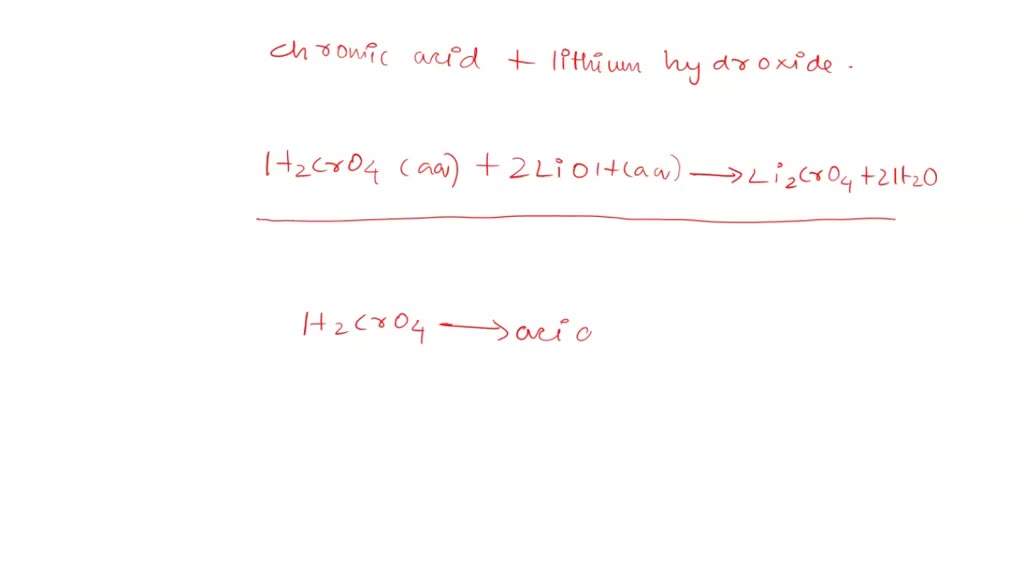 chromic acid + lithium hydroxide.
H₂CrO₄ (aq) + 2LiOH(aq) → Li₂CrO₄ + 2H₂O
H₂CrO₄ → aci